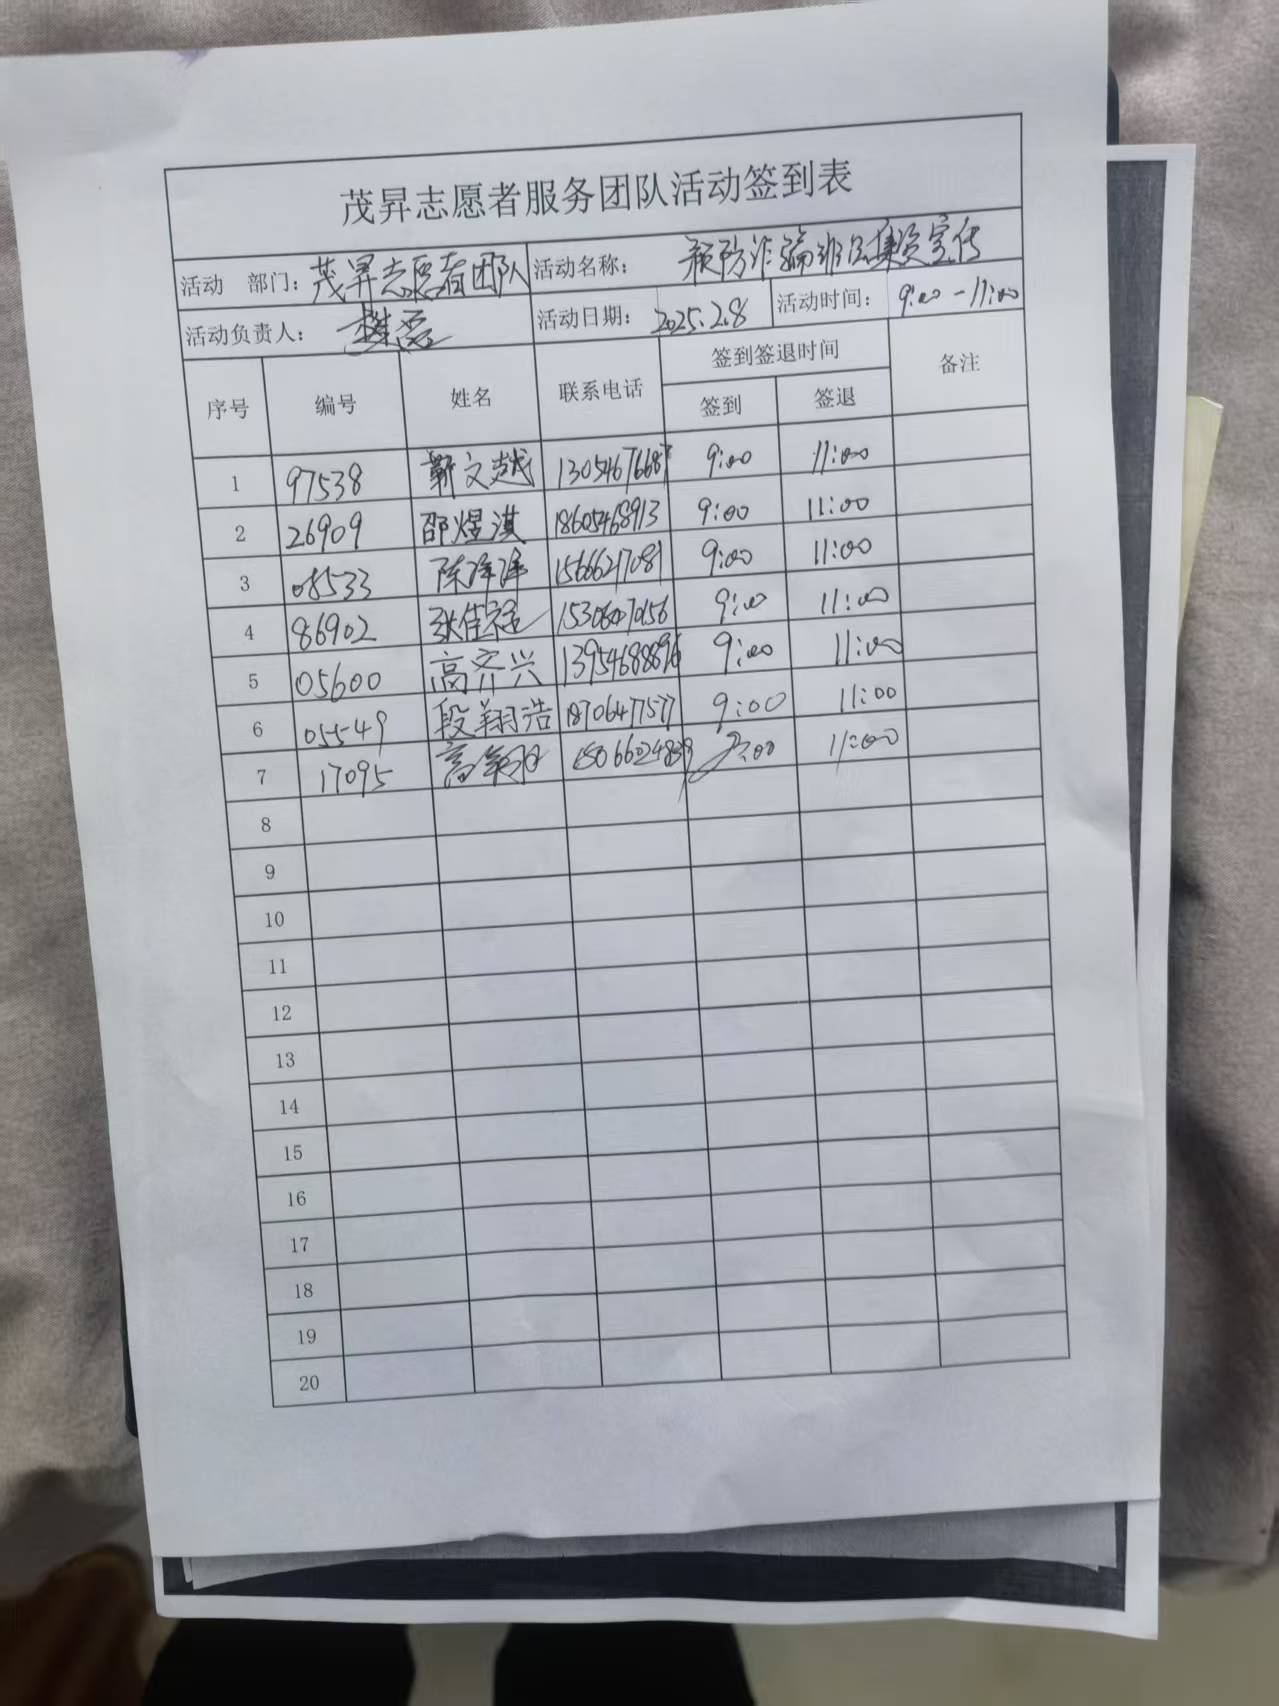 茂昇志愿者服务团队活动签到表
活动 部门：茂昇志愿者团队 活动名称：预防诈骗非法集资宣传
活动负责人： 樊磊 活动日期：2025.2.8 活动时间：9:00-11:00
序号 编号 姓名 联系电话 签到签退时间 备注
签到 签退
1 97538 靳文越 13054676687 9:00 11:00
2 26909 邵煜淇 18605468913 9:00 11:00
3 08533 陈泽泽 15666217081 9:00 11:00
4 86902 张佳 9:00 11:00
5 05600 高齐兴 13954688896 9:00 11:00
6 05549 段翔浩 18706477577 9:00 11:00
7 17095 高 15066024839 9:00 11:00
8
9
10
11
12
13
14
15
16
17
18
19
20